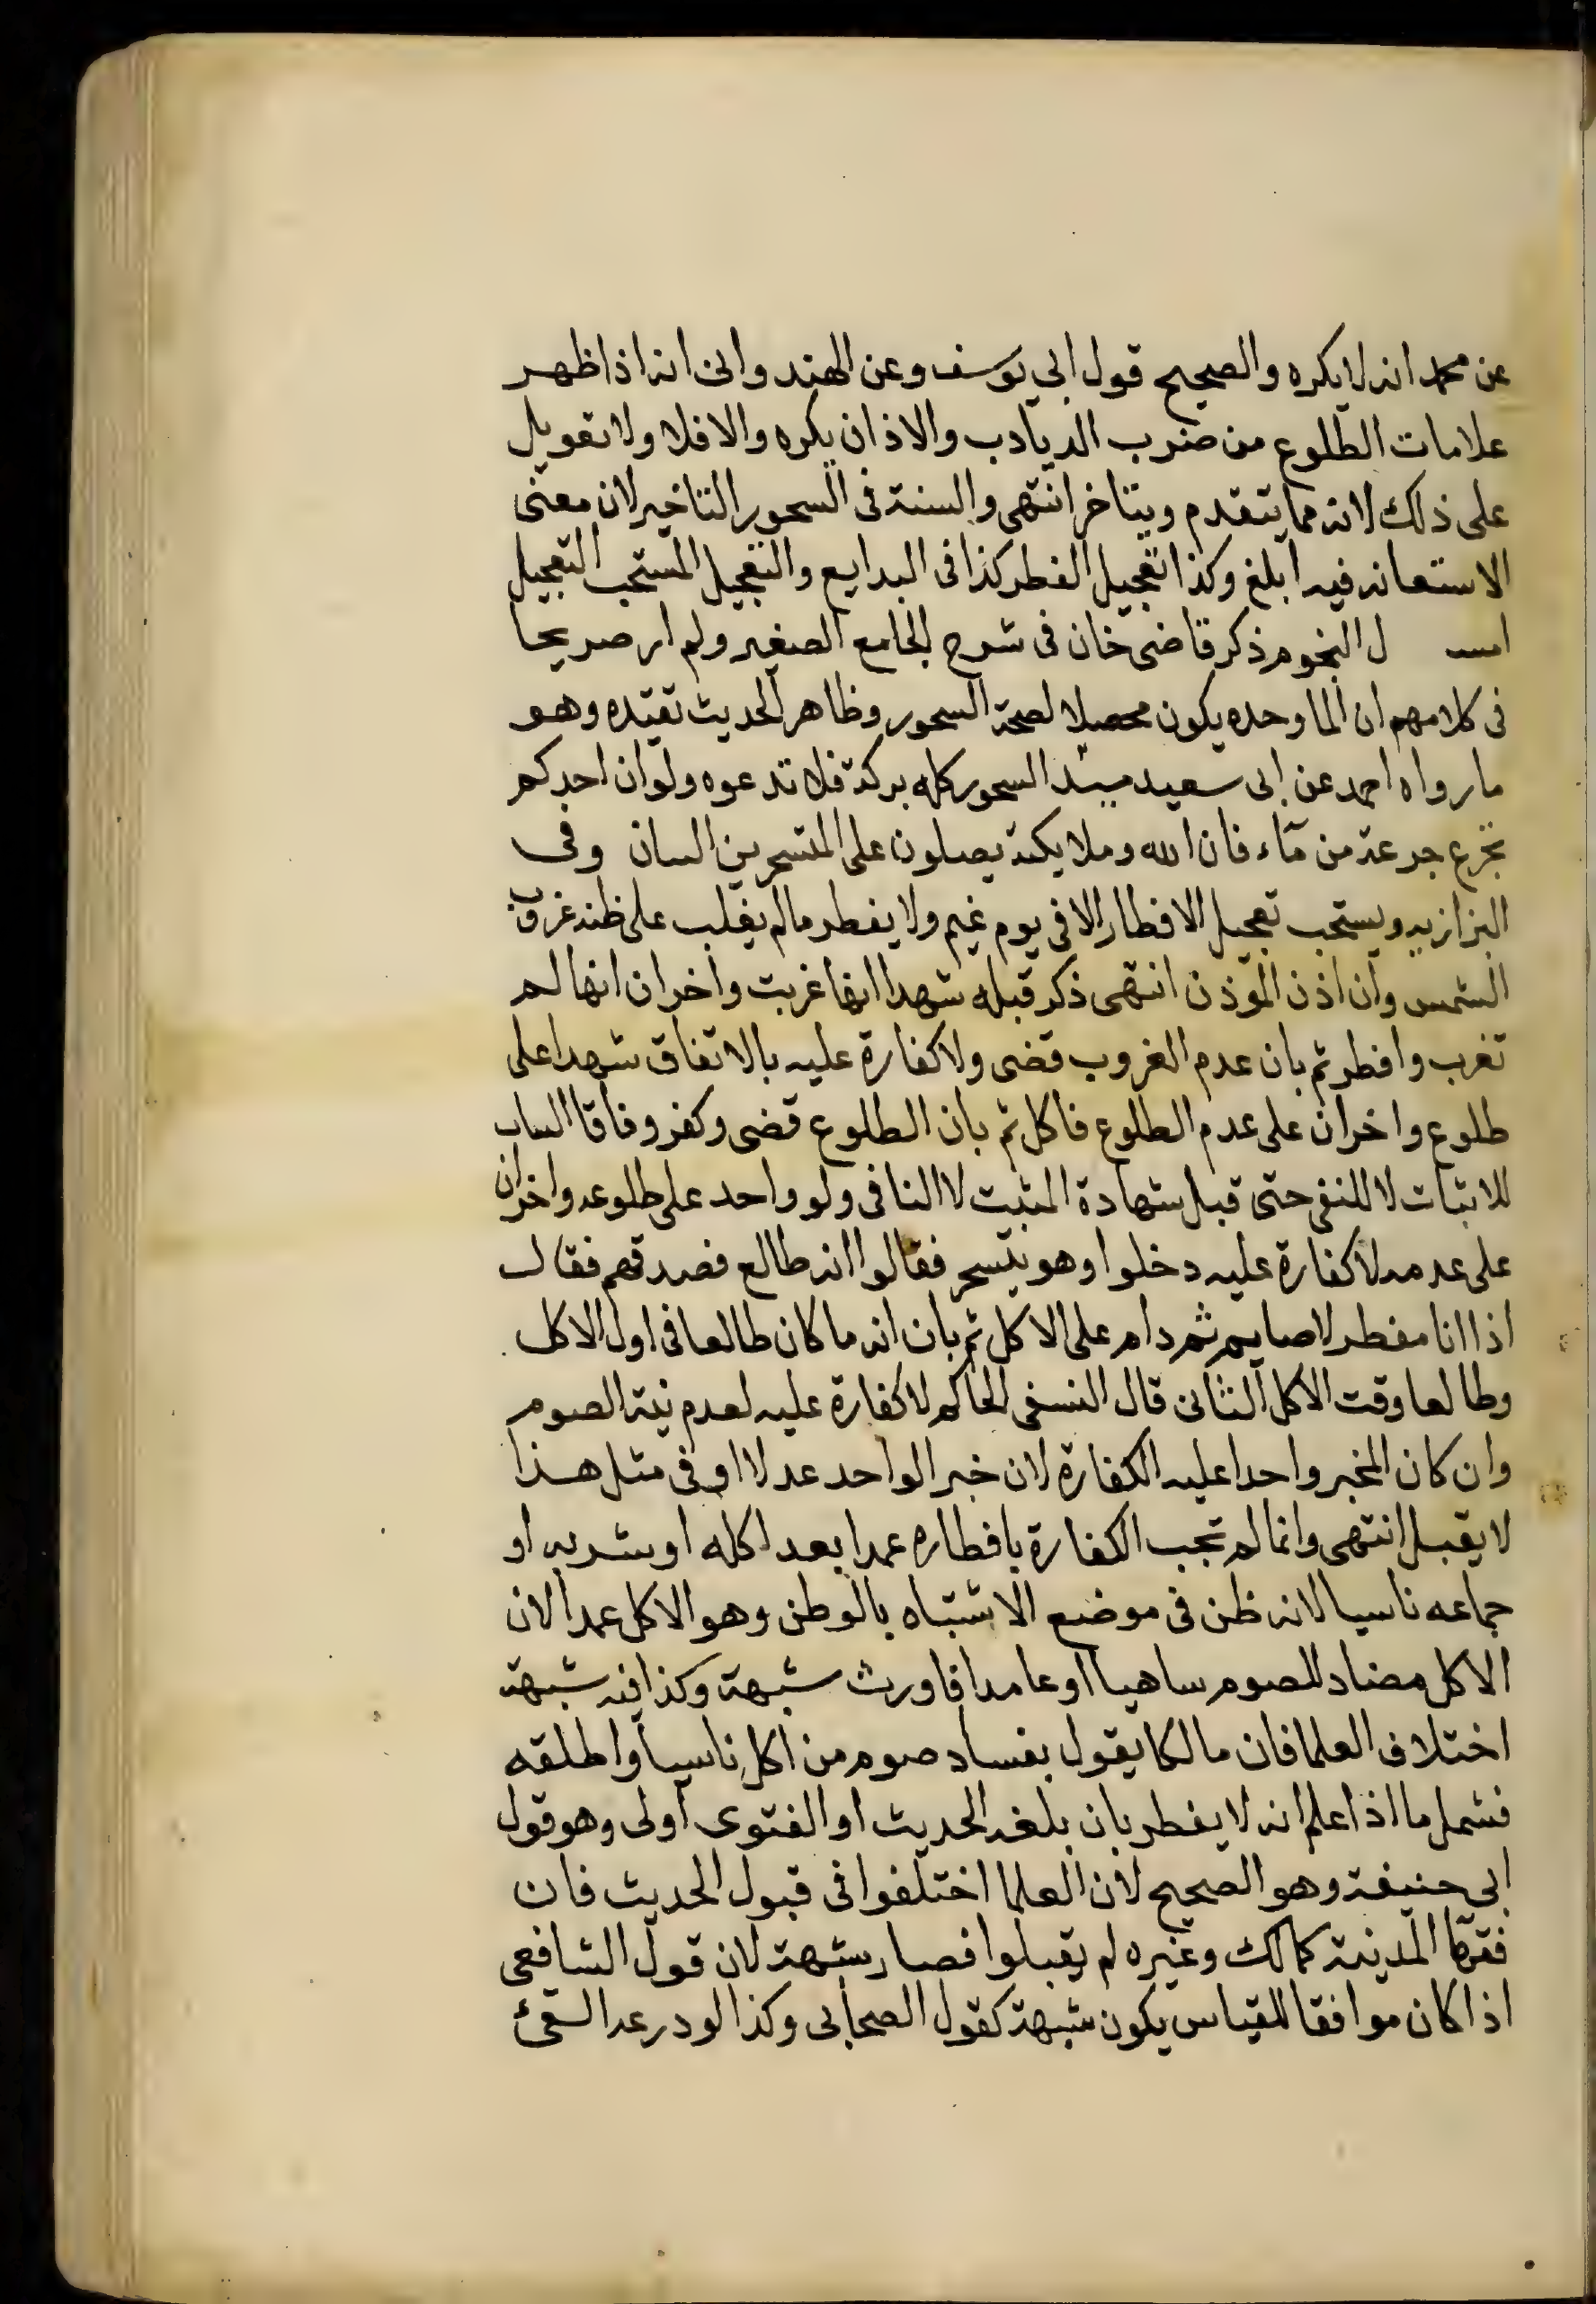 عن محمد انه لا يكره والصحيح قول ابي يوسف وعن الهندوانى انه اذا ظهر
علامات الطلوع من ضرب الديادب والاذان يكره والا فلا ولا تعويل
على ذلك لانه مما يتقدم ويتاخر انتهى والسنة فى السحور التاخير لان معنى
الاستعانه فيه ابلغ وكذا تعجيل الفطر كذا فى البدايع والتعجيل المستحب التعجيل
ل النجوم ذكر قاضى خان فى شرح الجامع الصغير ولم ار صريحا
فى كلامهم ان الما وحده يكون محصلا لصحة السحور وظاهر الحديث تفيده وهو
ما رواه احمد عن ابى سعيد السحور كله بركة فلا تدعوه ولو ان احدكم
تجرع جرعة من مآء فان الله وملايكته يصلون على المتسحرين وفى
البزازيه ويستحب تعجيل الافطار الا فى يوم غيم ولا يفطر ما لم يغلب على ظنه غروب
الشمس وان اذن الموذن انتهى ذكر قبله شهدا انها غربت واخران انها لم
تغرب وافطر ثم بان عدم الغروب قضى ولا كفارة عليه بالاتفاق شهدا على
طلوع واخران على عدم الطلوع فاكل ثم بان الطلوع قضى وكفر وفاقا
للاثبات لا للنفى حتى قبل شهادة المثبت لا النافى ولو واحد على طلوعه واخران
على عدمه لا كفارة عليه دخلوا وهو يتسحر فقالوا انه طالع فصدقهم فقال
اذا انا مفطر لا صايم ثم دام على الاكل ثم بان انه ما كان طالعا فى اول الاكل
وطالعا وقت الاكل الثانى قال النسفى الحاكم لا كفارة عليه لعدم نية الصوم
وان كان المخبر واحدا عليه الكفارة لان خبر الواحد عدلا او فى مثل هذا
لا يقبل انتهى وانما لم تجب الكفارة بافطاره عمدا بعد اكله او شربه او
جماعه ناسيا لانه ظن فى موضع الاشتباه بالوطن وهو الاكل عمدا لان
الاكل مضاد للصوم ساهيا او عامدا فاورث شبهة وكذا فيه شبهة
اختلاف العلما فان مالكا يقول بفساد صوم من اكل ناسيا واطلقه
فشمل ما اذا علم انه لا يفطر بان بلغه الحديث او الفتوى اولى وهو قول
ابي حنيفة وهو الصحيح لان العلما اختلفوا فى قبول الحديث فان
فقها المدينة كمالك وغيره لم يقبلوا فصار شبهة لان قول الشافعى
اذا كان موافقا للقياس يكون شبهة كقول الصحابى وكذا لو درعه القئ